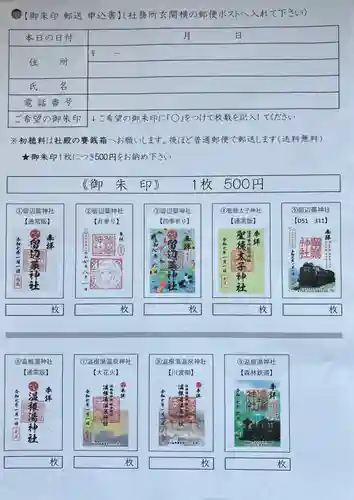 【御朱印 郵送 申込書】(社務所玄関横の郵便ポストへ入れて下さい)
本日の日付 月 日
住所 〒 ー
氏名
電話番号
ご希望の御朱印 ↓ご希望の御朱印に「○」をつけて枚数を記入してください
※初穂料は社殿の賽銭箱へお願いします。後ほど普通郵便で郵送します(送料無料)
★御朱印1枚につき500円をお納め下さい
《御朱印》 1枚 500円
①留辺蘂神社
【通常版】
奉拝
留辺蘂神社
枚
②留辺蘂神社
【月参り】
枚
③留辺蘂神社
【四季参り】
奉拝
留辺蘂神社
枚
④聖徳太子神社
【通常版】
奉拝
聖徳太子神社
枚
⑤留辺蘂神社
【D51 311】
奉拝
枚
⑥温根湯神社
【通常版】
奉拝
温根湯神社
枚
⑦温根湯温泉神社
【大花火】
奉拝
温根湯神社
枚
⑧温根湯温泉神社
奉拝
温根湯神社
枚
⑨温根湯神社
【森林鉄道】
奉拝
枚